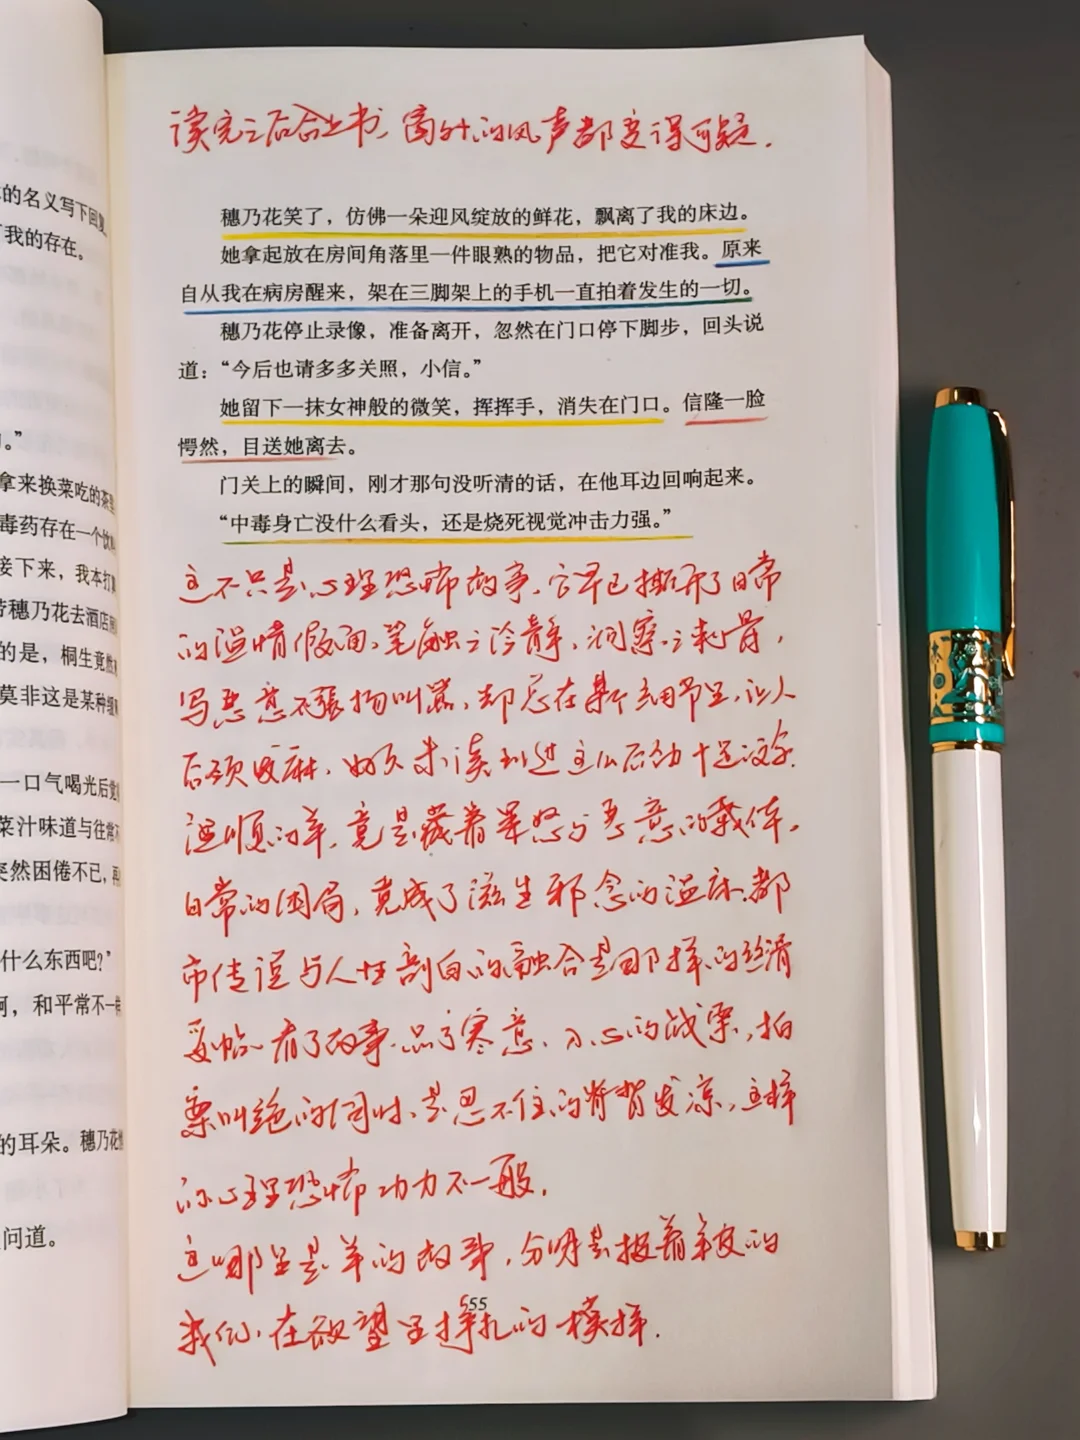 读完之后合上书，窗外的风声都变得可疑．
穗乃花笑了，仿佛一朵迎风绽放的鲜花，飘离了我的床边。
她拿起放在房间角落里一件眼熟的物品，把它对准我。原来
自从我在病房醒来，架在三脚架上的手机一直拍着发生的一切。
穗乃花停止录像，准备离开，忽然在门口停下脚步，回头说
道：“今后也请多多关照，小信。”
她留下一抹女神般的微笑，挥挥手，消失在门口。信隆一脸
愕然，目送她离去。
门关上的瞬间，刚才那句没听清的话，在他耳边回响起来。
“中毒身亡没什么看头，还是烧死视觉冲击力强。”
这不只是心理恐怖故事，它早已撕开了日常
的温情假面，笔触之冷静，洞察之刺骨，
写恶意不張扬叫嚣，却总在某个细节里，让人
后颈发麻，好久未读到过这么后劲十足的文字．
温順的羊，竟是藏着罪怒与恶意的载体，
日常的困局，竟成了滋生邪念的温床．都
市传说与人性剖白的融合是那样的丝滑
妥帖．看了故事，品了寒意、入心的战栗，拍
案叫绝的同时，是忍不住的脊背发凉，这样
的心理恐怖功力不一般．
这哪里是羊的故事，分明是披着羊皮的
我们，在欲望里掙扎的模样．
55
的名义写下回复，
我的存在。
”
拿来换菜吃的茶
毒药存在一个
接下来，我本打
穗乃花去酒店
的是，桐生竟然
莫非这是某种
一口气喝光后
菜汁味道与往常不
突然困倦不已，再
什么东西吧？”
啊，和平常不一样
的耳朵。穗乃花
问道。